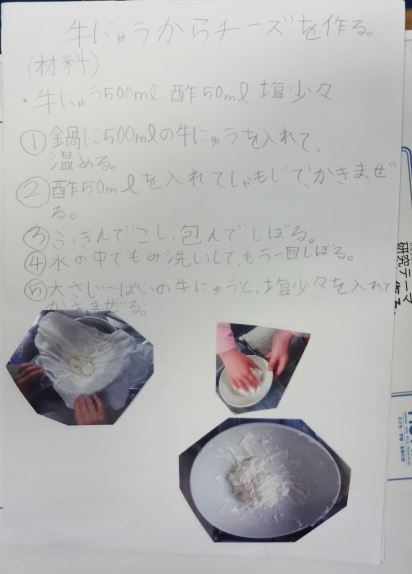 牛にゅうからチーズを作る。
(材料)
・牛にゅう500ml 酢50ml 塩少々
①鍋に500mlの牛にゅうを入れて、
温める。
②酢50mlを入れてしゃもじで、かきまぜ
る。
③ふきんでこし、包んでしぼる。
④水の中でもみ洗いして、もう一回しぼる。
⑤大さじ一ぱいの牛にゅうと、塩少々を入れて
かきまぜる。
研究テーマ